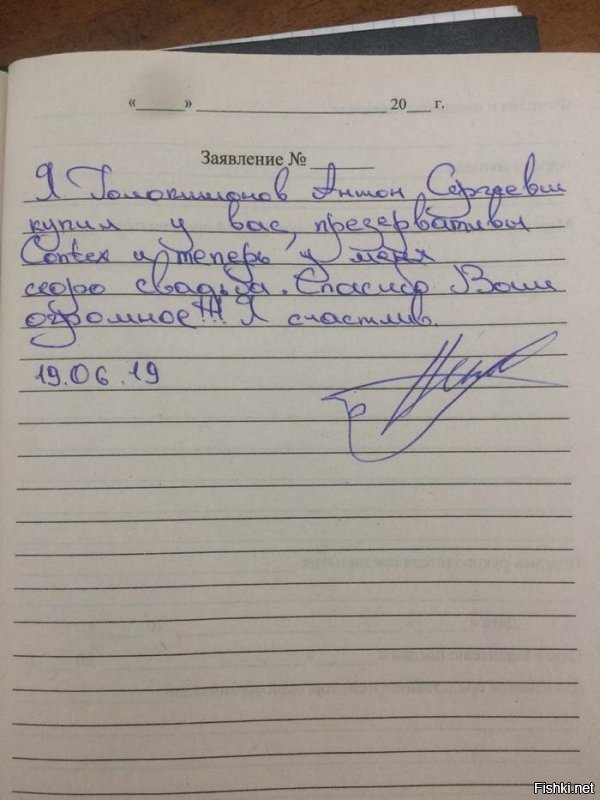 «______» ______________________ 20___ г.
Заявление № ______
Я Антон Сергеевич
купил у вас, презервативы
Contex и теперь у меня
скоро свадьба. Спасибо Вам
огромное!!! Я счастлив.
19.06.19
Fishki.net